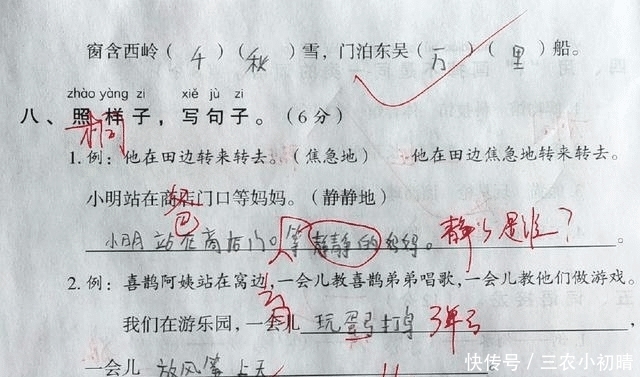 窗含西岭（千）（秋）雪，门泊东吴（万）（里）船。
zhào yàng zi xiě jù zi
八、照样子，写句子。（6分）
1. 例：他在田边转来转去。（焦急地） 他在田边焦急地转来转去。
小明站在商店门口等妈妈。（静静地）
小明站在商店门口等静静的妈妈。 静静是谁？
2. 例：喜鹊阿姨站在窝边，一会儿教喜鹊弟弟唱歌，一会儿教他们做游戏。
我们在游乐园，一会儿 玩蛋弓打鸟 弹弓
一会儿 放风筝上天
快传号 / 三农小初晴